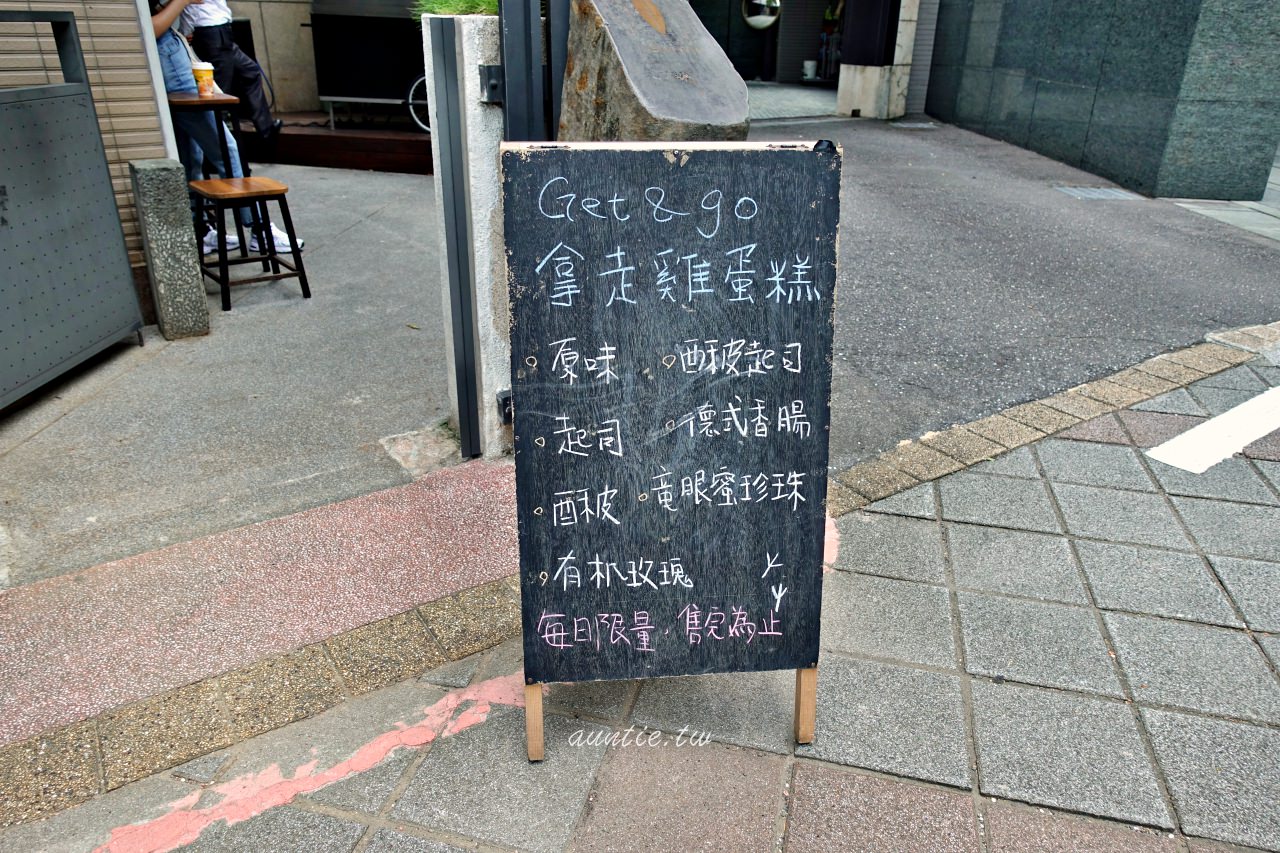 Get & go
拿走雞蛋糕
原味
酥皮起司
起司
德式香腸
酥皮
竜眼蜜珍珠
有机玫瑰
每日限量，售完為止
auntie.tw